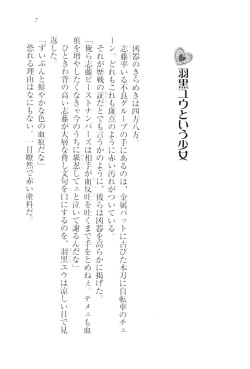 7
羽黒ユウという少女
凶器のきらめきは四方八方。
志藤率いる不良グループの手にあるのは、金属バットに古びた木刀に自転車のチェ
ーン。どれもこれも斑点のように赤い汚れがついている。
それが歴戦の証だとでも言うかのように、彼らは凶器を高らかに掲げた。
「俺ら志藤ビーストナンバーズは相手が血反吐を吐くまで手をとめねぇ。テメェも血
痕を増やしたくなきゃ今のうちに壊忍してェと泣いて謝るんだな」
ひときわ背の高い志藤が大層な脅し文句を口にするのを、羽黒ユウは涼しい目で見
「ずいぶんと鮮やかな色の血痕だな」
恐れる理由はなにもない。一目瞭然で赤い塗料だ。